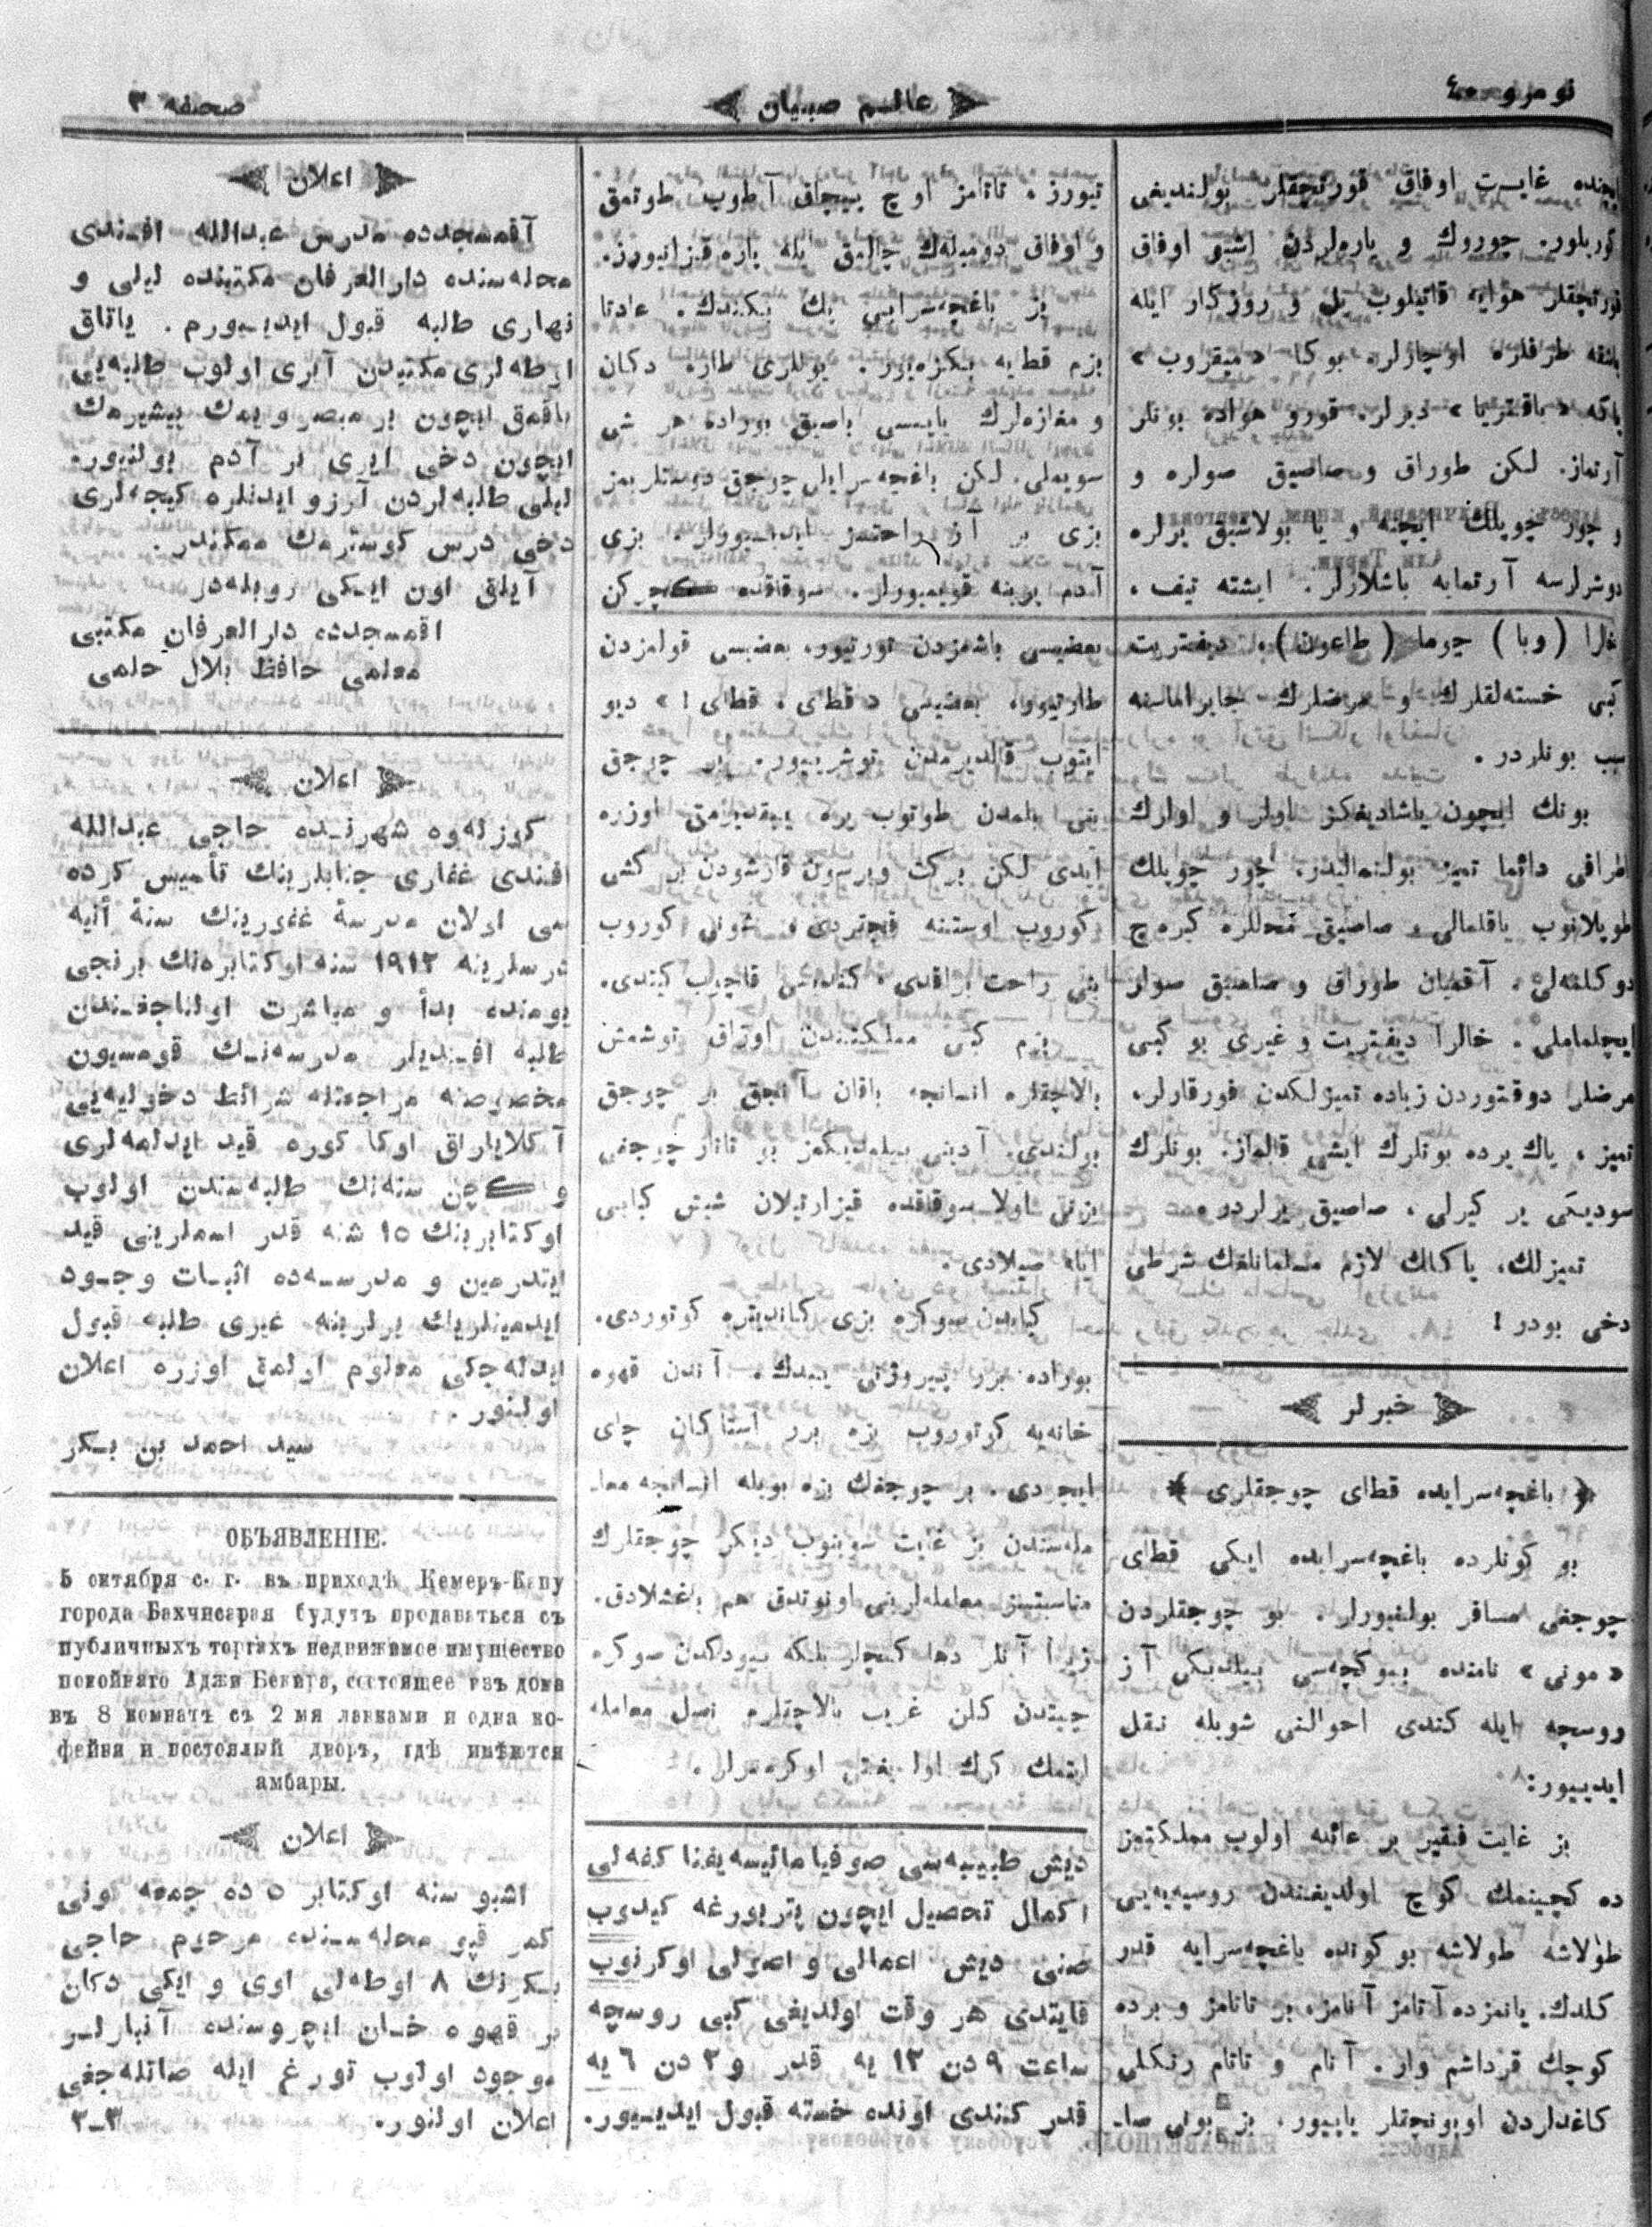 نومرو ٤٠
عالم صبیان
صحیفه ٣
ایچنده غایت اوفاق قورتچقلر بولندیغی
کوریلور. چوروك و یارەلردن اشبو اوفاق
قورتچقلر هوایه قاتیلوب یل و روزکار ایله
باشقه طرفلره اوچارلر. بوکا «میقروب»
یاکه «باقتریا» دیرلر. قورو هواده بونلر
آرتماز. لکن طوراق و صاصیق صولره و
چور چوپلك ایچنه و یا بولاشیق یرلره
دوشرلرسه آرتمایه باشلارلر. ایشته تیف،
خالرا (وبا) چوما (طاعون)، دیفتریت
کبی خسته‌لقلرك و مرضلرك
سبب بونلردر.
بونك ایچون یاشادیغکز اولر و اولرك
اطرافی دائما تمیز بولنمالیدر، چور چوپلك
طوپلانوب یاقلمالی، صاصیق محللره کیره‌ج
دوکلمه‌لی، آقمیان طوراق و صاصیق صولر
ایچلماملی. خالرا دیفتریت و غیری بو کبی
مرضلر دوقتوردن زیاده تمیزلکدن قورقارلر.
تمیز، پاك یرده بونلرك ایشی قالماز. بونلرك
سودیکی یر کیرلی، صاصیق یرلردر.
تمیزلك، پاکلك لازم مسلمانلغك شرطی
دخی بودر!
خبرلر
باغچه‌سرایده قطای چوجقلری
بو کونلرده باغچه‌سرایده ایکی قطای
چوجغی مسافر بولنیورلر. بو چوجقلردن
«مونی» نامنده بیوکچه‌سی بیلدیکی آز
روسچه ایله کندی احوالنی شویله نقل
ایدییور:
بز غایت فقیر بر عائله اولوب مملکتمز
ده کچینمك کوچ اولدیغندن روسیه‌یی
طولاشه طولاشه بو کونده باغچه‌سرایه قدر
کلدك. یانمزده آتامز آنامز، بر تاتامز و برده
کوچك قرداشم وار. آنام و تاتام رنکلی
کاغدلردن اویونچقلر یاپیور. بز بونی صا-
تیورز، تاتامز اوچ بیچاق آطوب طوتمق
و اوفاق دومبله‌ك چالمق ایله پاره قزانیورز.
بز باغچه‌سرایی پك بکندك. عادتا
بزم قطایه بکزه‌یور. یوللری طار، دکان
و مغازه‌لرك یاپیسی باصیق بوراده هر شی
سویملی. لکن باغچه‌سرایلی چوجق دوستلریمز
بزی بر آز راحتسز ایدییورلر. بزی
آدم یرینه قویمیورلر. سوقاقده کچرکن
بعضیسی باشمزدن تورتیور، بعضیسی قولمزدن
طارتیور، بعضیسی «قطای، قطای!» دیو
ایتوب قالدیرمدن توشرییور. بر چوجق
بنی بلمدن طوتوب یره ییقدیرمق اوزره
ایدی لکن برکت ویرسون قارشودن بر کشی
کوروب اوستنه قیچقردی، شونی کوروب
بنی راحت براقدی، کندیسی قاچوب کیتدی.
بزم کبی مملکتندن اوزاق توشمش
بالاچقلره انسانجه باقان آنجق بر چوجق
بولندی. آدینی بیلمدیکمز بر تاتار چوجغی
بزنی اولا سوقاقده قیزارتیلان شیش کبابی
ایله صیلادی.
کبابدن سوکره بزی کاندیتره کوتوردی.
بوراده برر پیروژنی ییدك. آندن قهوه
خانه‌یه کوتوروب بزه برر استاکان چای
ایچردی. بر چوجغك بزه بویله انسانچه معا-
مله‌سندن بز غایت سوینوب دیکر چوجقلرك
مناسبتسز معامله‌لرینی اونوتدق هم باغشلادق.
زیرا آنلر دها کنچلر بلکه بیودکدن صوکره
چیتدن کلن غریب بالاچقلره نصل معامله
ایتمك کرك اولدیغنی اوکره‌نرلر.
دیش طبیبه‌سی صوفیا مائیسه‌یغنا کفه‌لی
اکمال تحصیل ایچون پتربورغه کیدوب
صنی دیش اعمالی و اصولی اوکرنوب
قایتدی هر وقت اولدیغی کبی روسچه
ساعت ٩ دن ١٢ یه قدر و ٢ دن ٦ یه
قدر کندی اونده خسته قبول ایدییور.
اعلان
آقمسجدده مدرس عبدالله افندی
محله‌سنده دارالعرفان مکتبنده لیلی و
نهاری طلبه قبول ایدییورم. یاتاق
اوطه‌لری مکتبدن آیری اولوب طلبه‌یی
باقمق ایچون بر مبصر و یمك پیشیرمك
ایچون دخی ایری بر آدم بولنیور.
لیلی طلبه‌لردن آرزو ایدنلره کیجه‌لری
دخی درس کوسترمك ممکندر.
آیلق اون ایکی روبله‌در
اقمسجدده دارالعرفان مکتبی
معلمی حافظ بلال حلمی
اعلان
کوزله‌وه شهرنده حاجی عبدالله
افندی غفاری جنابلرینك تأسیس کرده
سی اولان مدرسۀ غفوریه‌نك سنۀ آتیه
درسلرینه ١٩١٢ سنه اوکتابره‌نك برنجی
یومنده بدأ و مباشرت اولناجغندن
طلبه افندیلر مدرسه‌نك قومسیون
مخصوصنه مراجعتله شرائط دخولیه‌یی
آکلایاراق اوکا کوره قید ایدلمه‌لری
و کچن سنه‌نك طلبه‌سندن اولوب
اوکتابرینك ١٥ شنه قدر اسملرینی قید
ایتدرمین و مدرسه‌ده اثبات وجود
ایدمینلریك یرلرینه غیری طلبه قبول
ایدله‌جکی معلوم اولمق اوزره اعلان
اولنور.
سید احمد بن بکر
ОБЪЯВЛЕНІЕ.
5 октября с. г. въ приходѣ Кемеръ-Капу
города Бахчисарая будутъ продаваться съ
публичныхъ торгахъ недвижимое имущество
покойнаго Аджи Бекира, состоящее изъ дома
въ 8 комнатъ съ 2 мя лавками и одна ко-
фейня и постоялый дворъ, гдѣ имѣются
амбары.
اعلان
اشبو سنه اوکتابر ٥ ده جمعه کونی
کمر قپو محله‌سنده مرحوم حاجی
بکرنك ٨ اوطه‌لی اوی و ایکی دکان
بر قهوه خان ایچروسنده آنبارلر
موجود اولوب تورغ ایله صاتله‌جغی
اعلان اولنور. ٣-٢